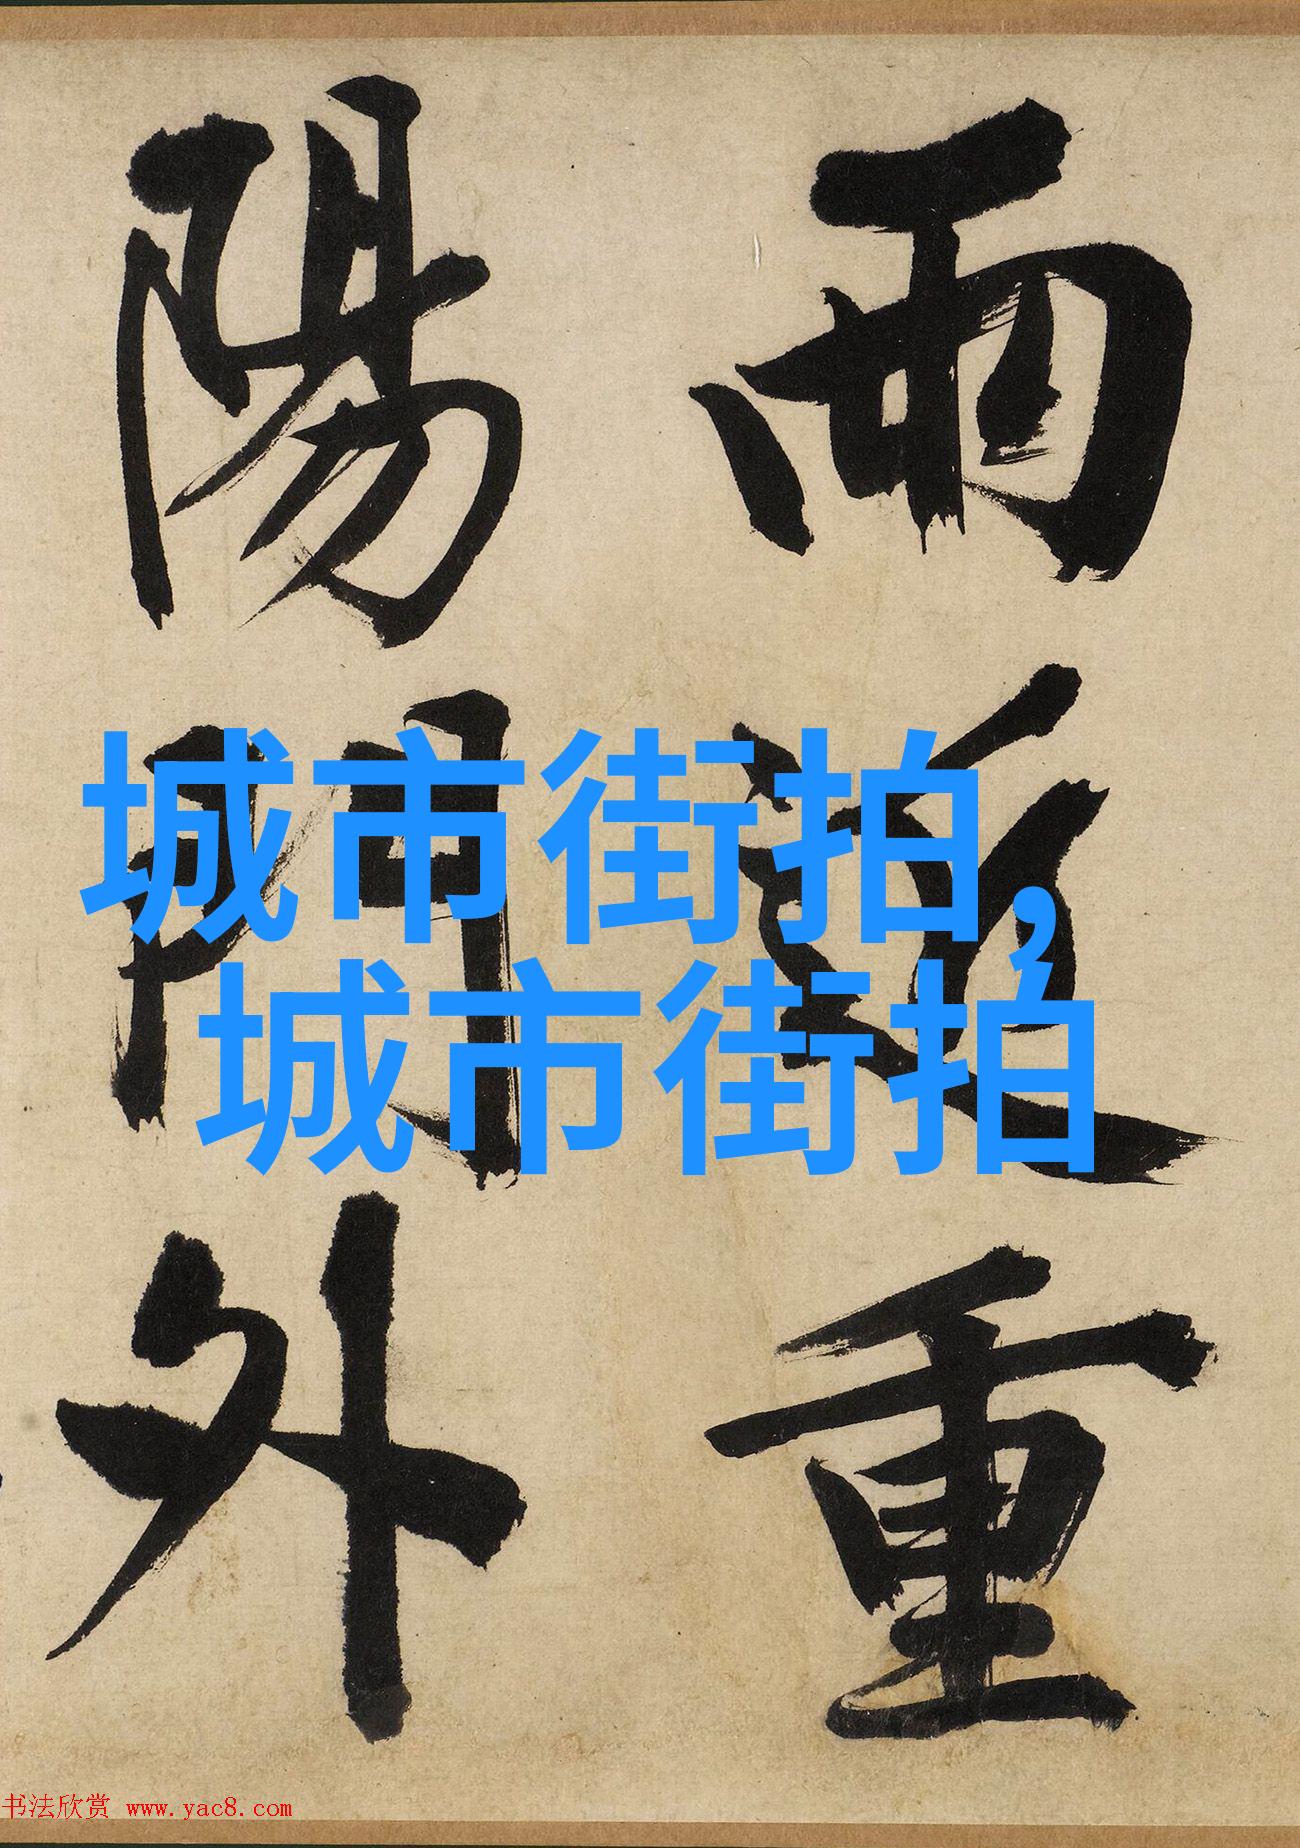 雨近重
陽門外
城市街拍,
城市街拍
书法欣赏 www.yac8.com